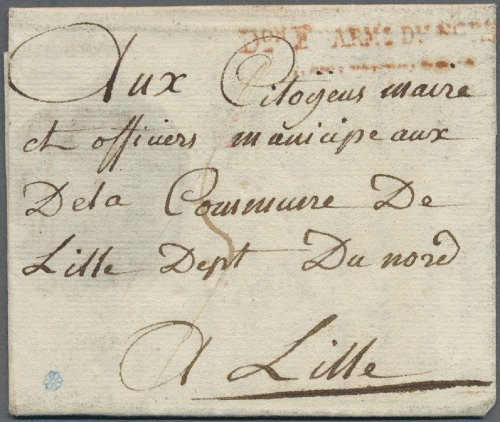 Don LE ARMée DU NORD
Aux Citoÿens maire
et officiers municipeaux
Dela Commune De
Lille Dept Du nord
A Lille